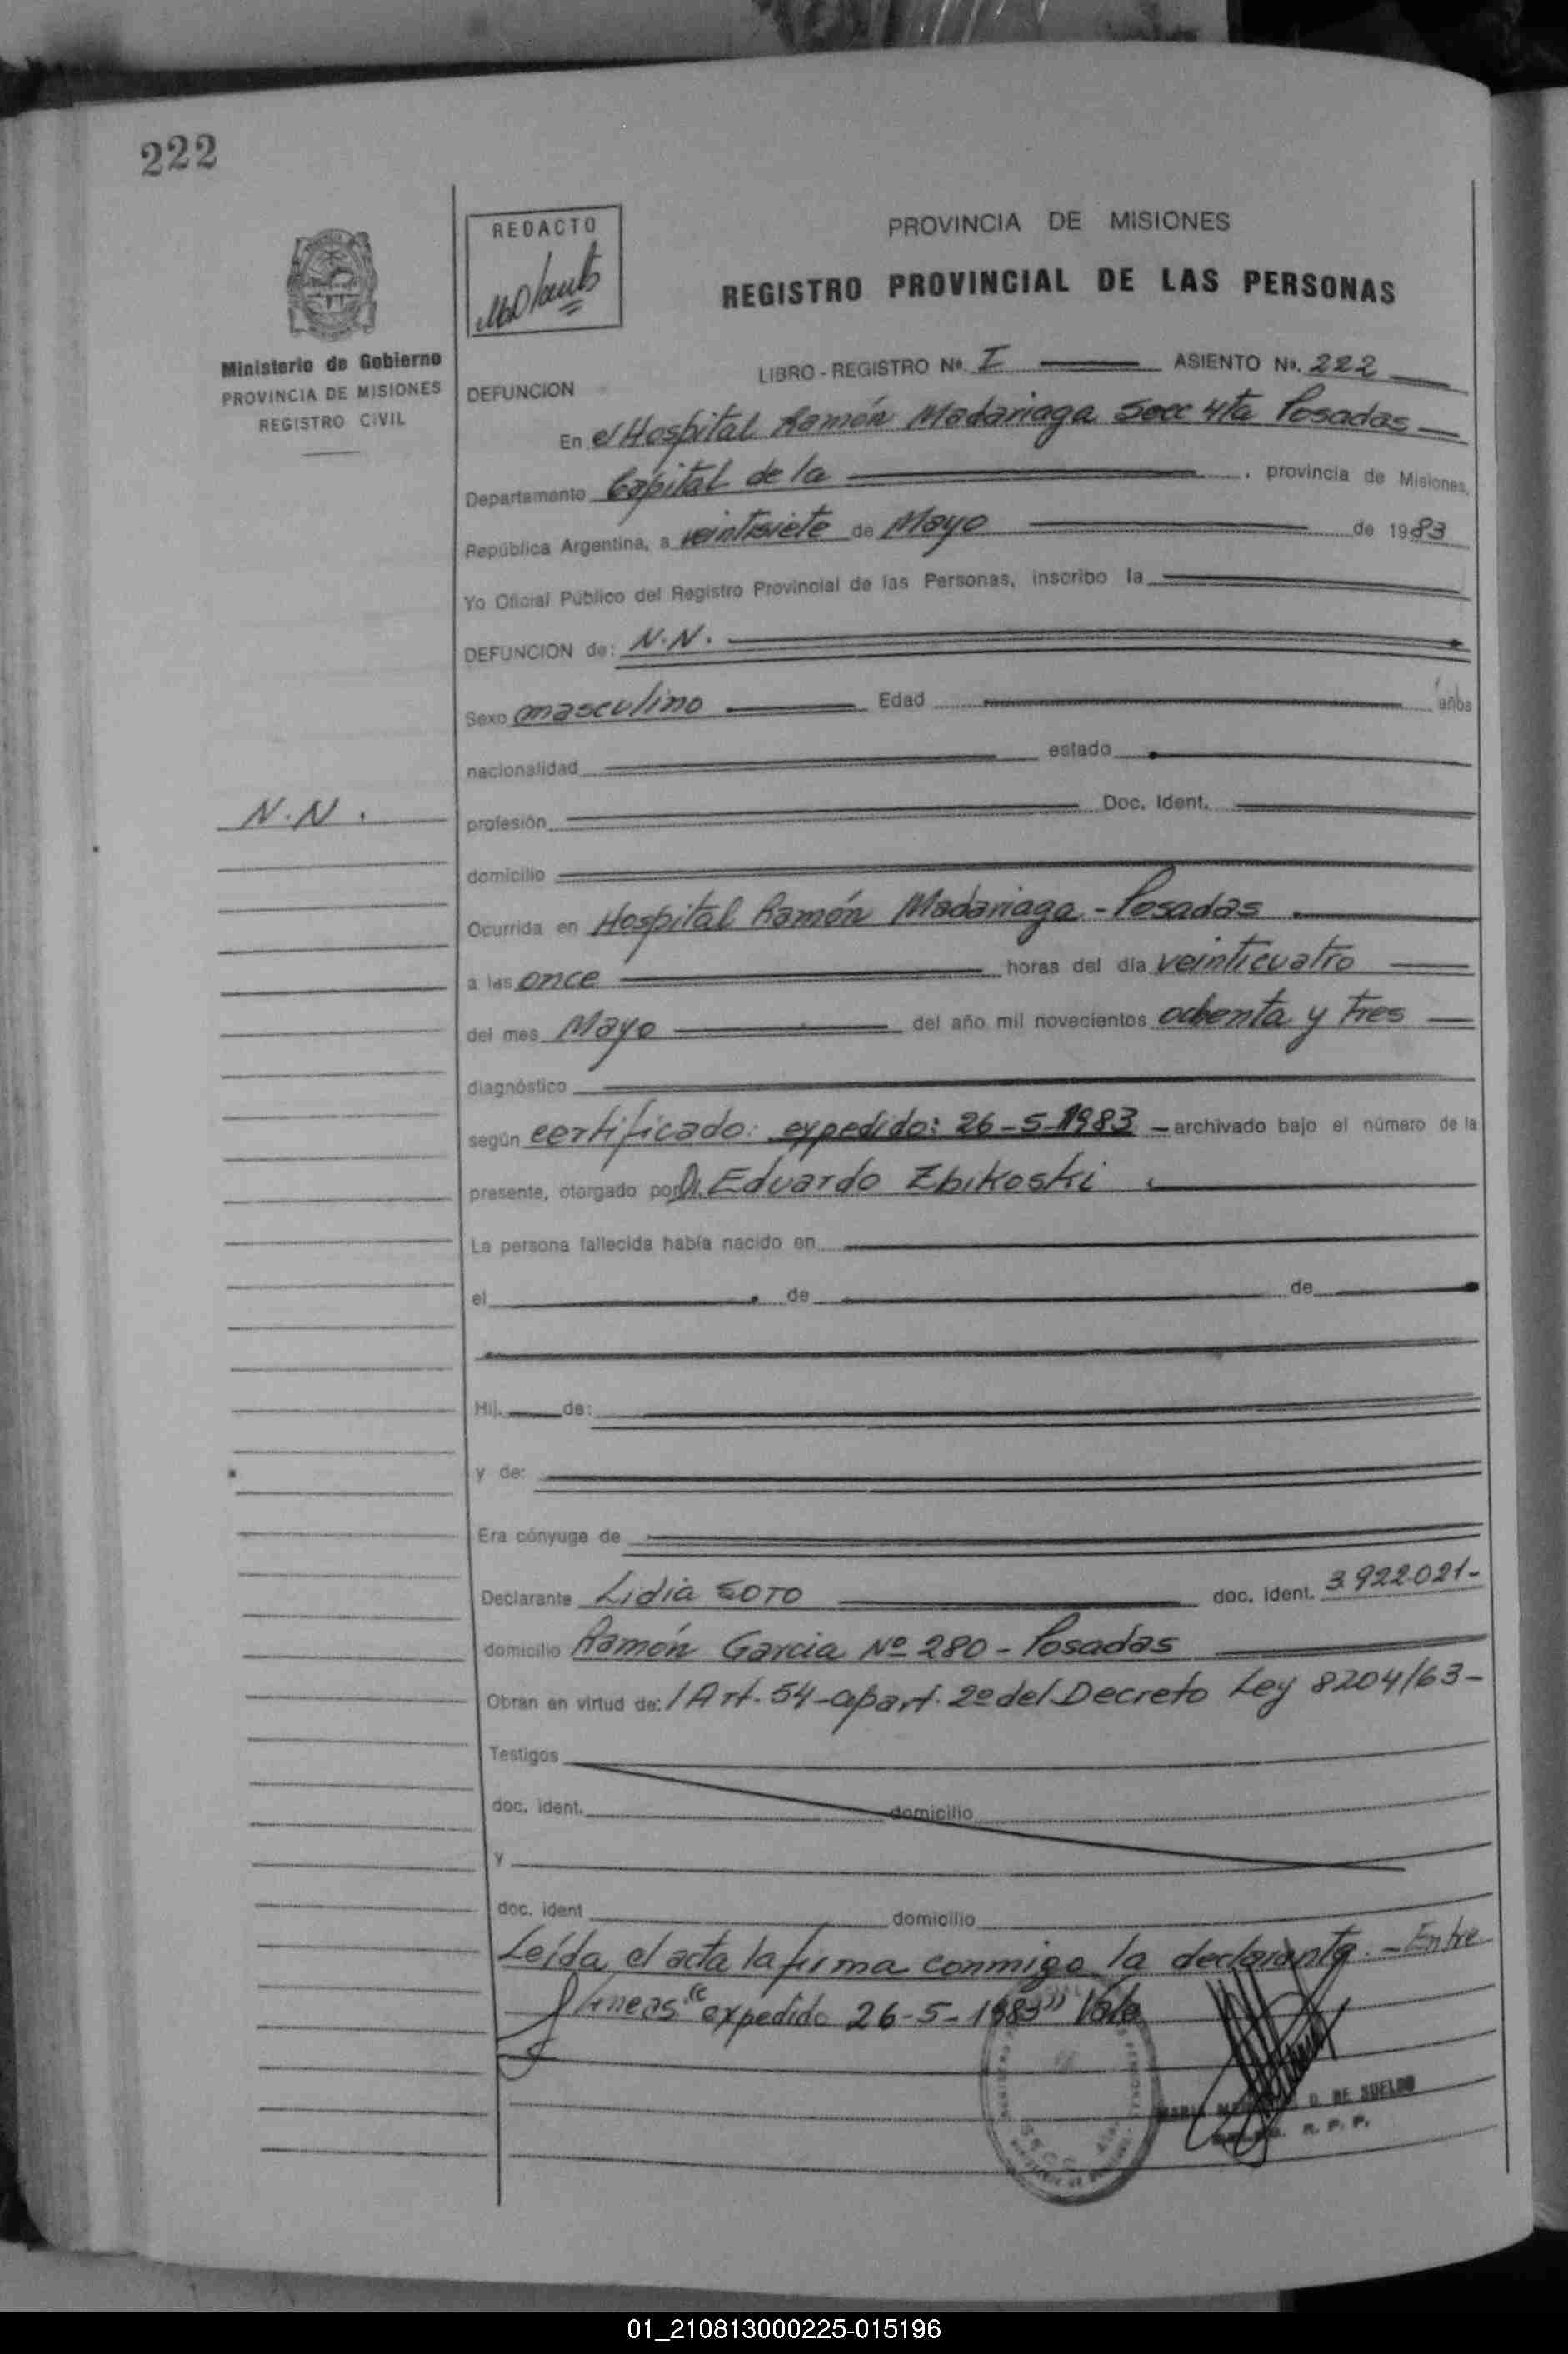 222
REDACTO
PROVINCIA DE MISIONES
REGISTRO PROVINCIAL DE LAS PERSONAS
Ministerio de Gobierno
PROVINCIA DE MISIONES
REGISTRO CIVIL
LIBRO - REGISTRO Nº. I ASIENTO Nº. 222
DEFUNCION
En el Hospital Ramón Madariaga Secc 4ta Posadas
Departamento Capital de la , provincia de Misiones,
República Argentina, a veintisiete de Mayo de 1983
Yo Oficial Público del Registro Provincial de las Personas, inscribo la
DEFUNCION de: N.N.
Sexo masculino Edad años
nacionalidad estado
N.N.
profesión Doc. Ident.
domicilio
Ocurrida en Hospital Ramón Madariaga - Posadas
a las once horas del día veinticuatro
del mes Mayo del año mil novecientos ochenta y tres
diagnóstico
según certificado: expedido: 26-5-1983 - archivado bajo el número de la
presente, otorgado por Dr. Eduardo Zbikoski
La persona fallecida había nacido en
el de de
Hij. de:
y de:
Era cónyuge de
Declarante Lidia SOTO doc. ident. 3.922.021-
domicilio Ramón Garcia Nº 280 - Posadas
Obran en virtud de: / Art. 54-apart. 2º del Decreto Ley 8204/63-
Testigos
doc. ident. domicilio
y
doc. ident domicilio
Leída el acta la firma conmigo la declarante. - Entre
líneas "expedido 26-5-1983" Vale
D. DE SUELDO
R. P. P.
01_210813000225-015196